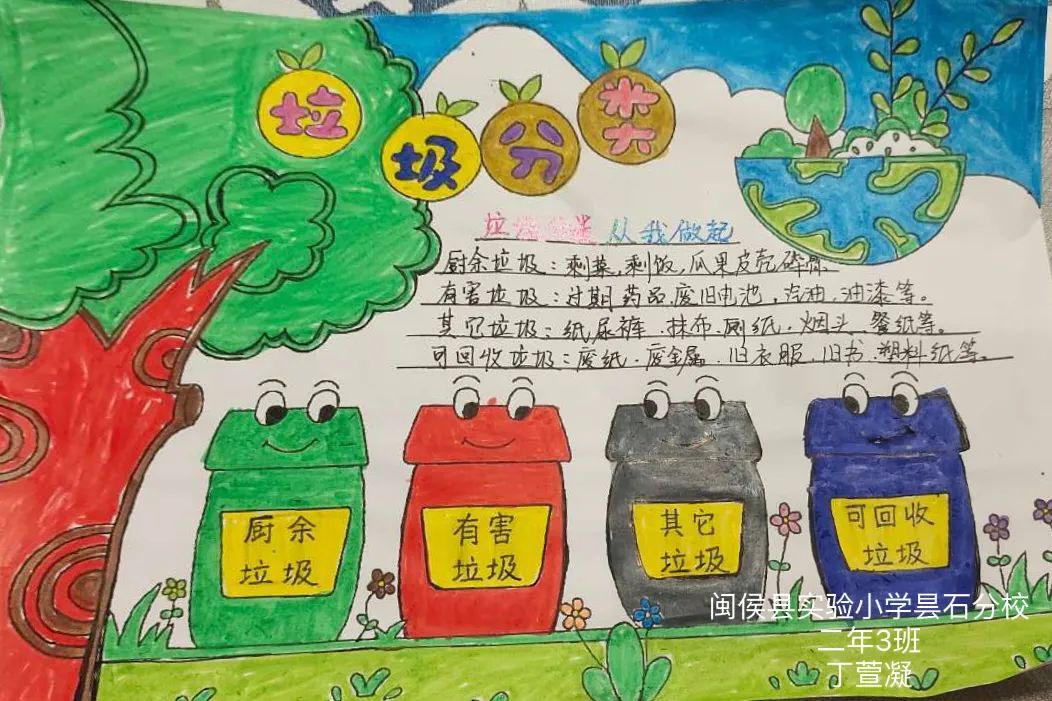 垃圾分类
垃圾分类 从我做起
厨余垃圾：剩菜，剩饭，瓜果皮壳碎骨、
有害垃圾：过期药品、废旧电池，汽油、油漆等。
其它垃圾：纸尿裤、抹布、厕纸、烟头、餐纸等。
可回收垃圾：废纸、废金属、旧衣服、旧书、塑料纸等。
厨余
垃圾
有害
垃圾
其它
垃圾
可回收
垃圾
闽侯县实验小学昙石分校
二年3班
丁萱凝